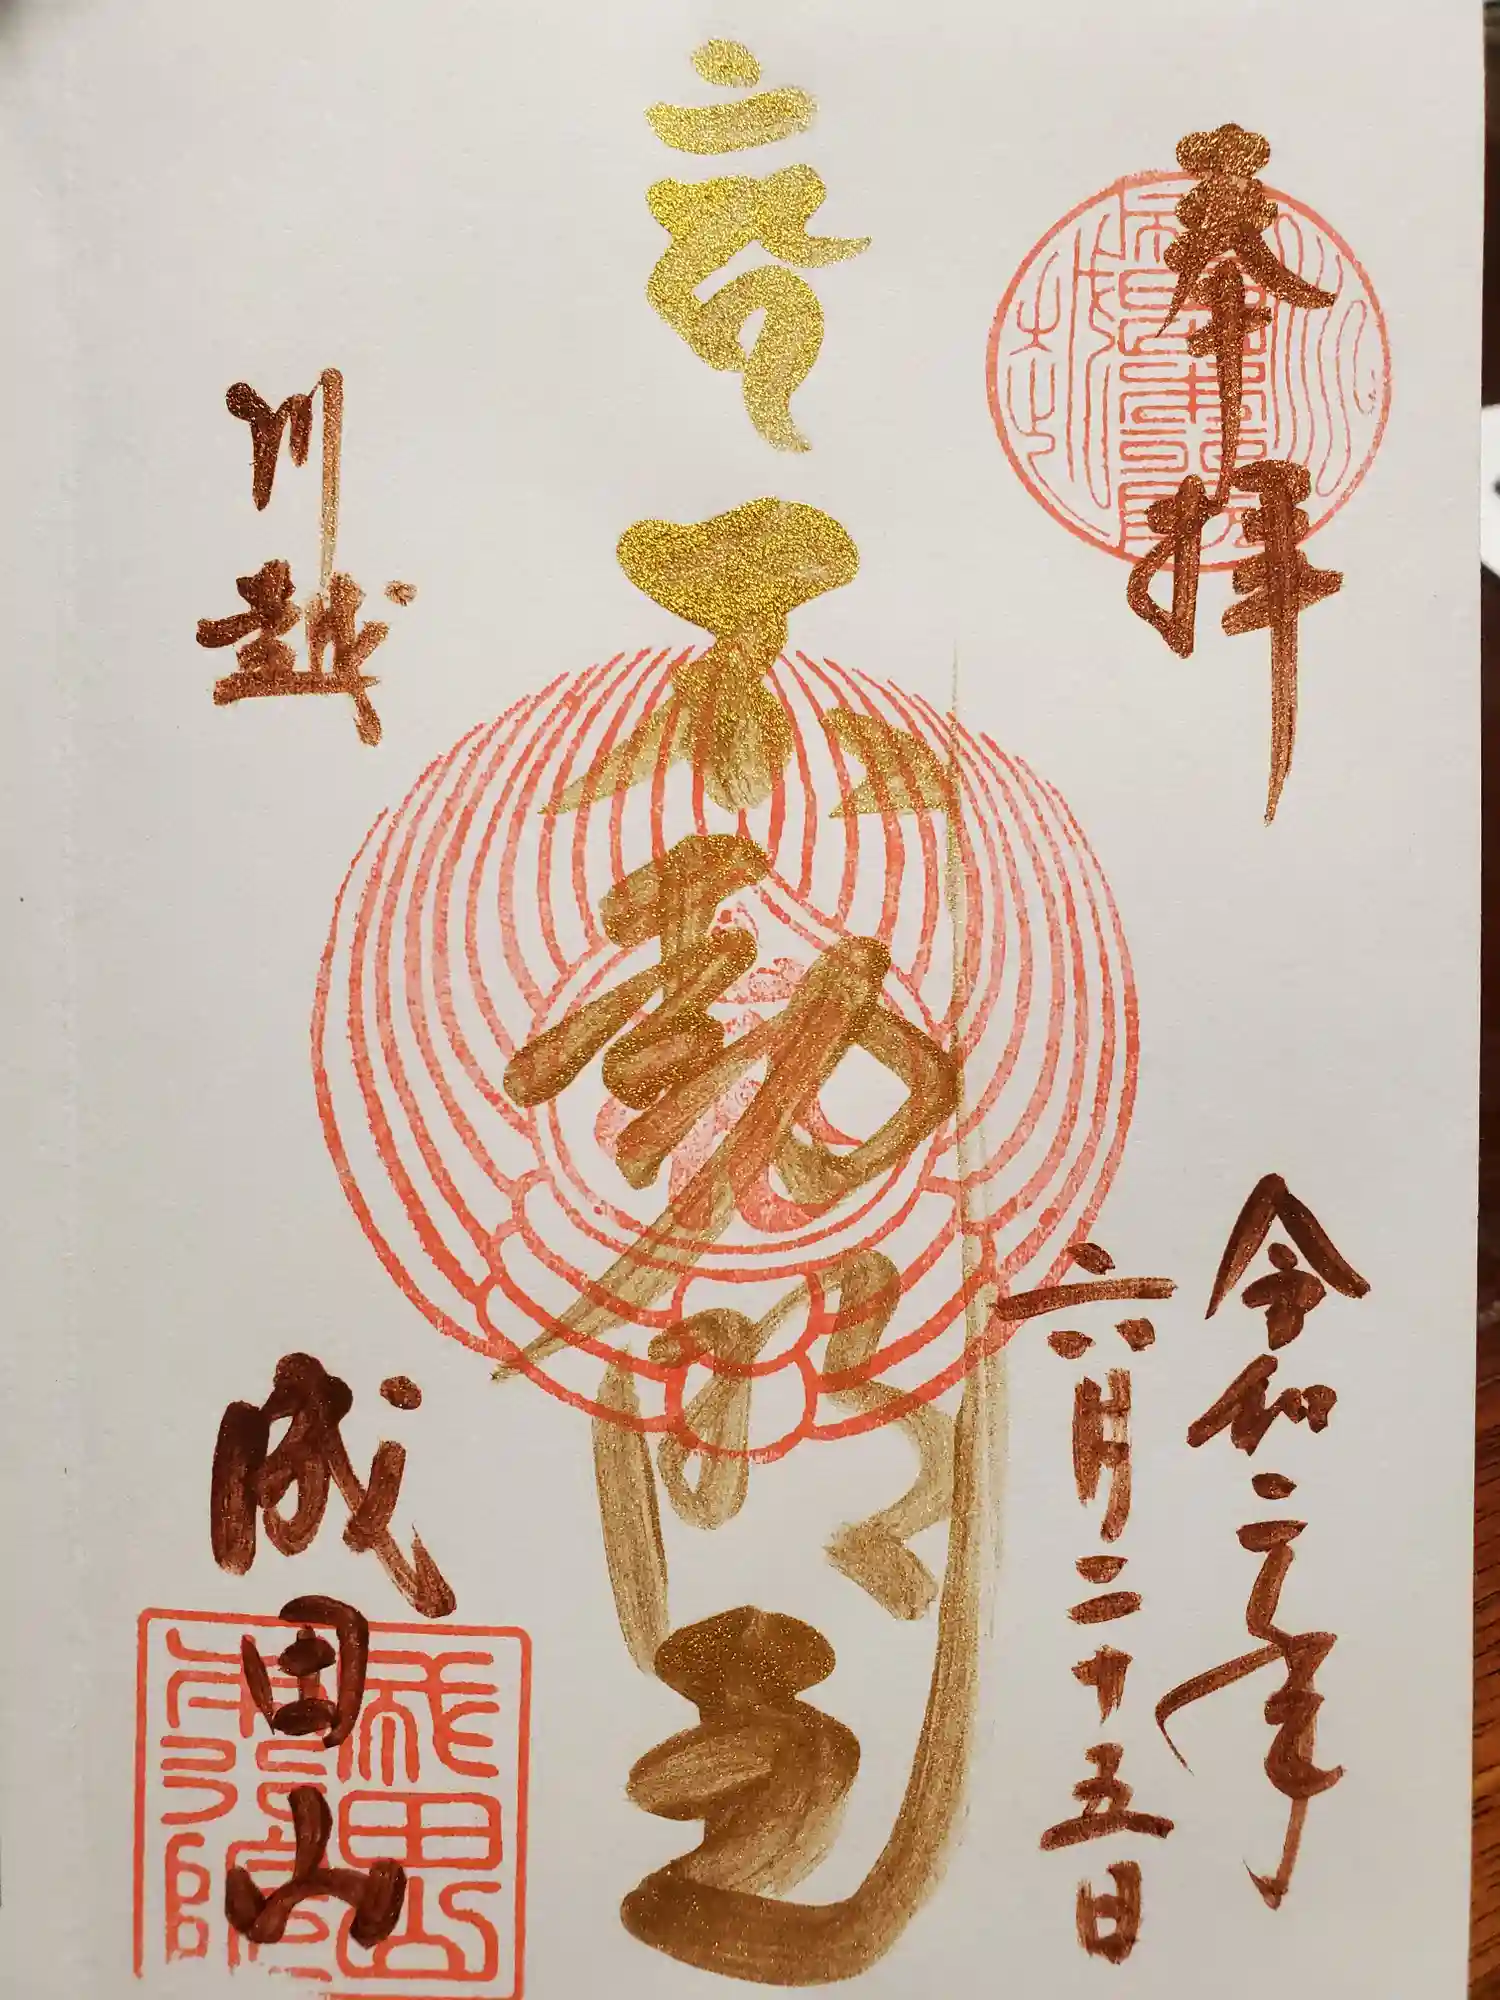 奉拝
令和二年
六月二十五日
不動明王
川越
成田山